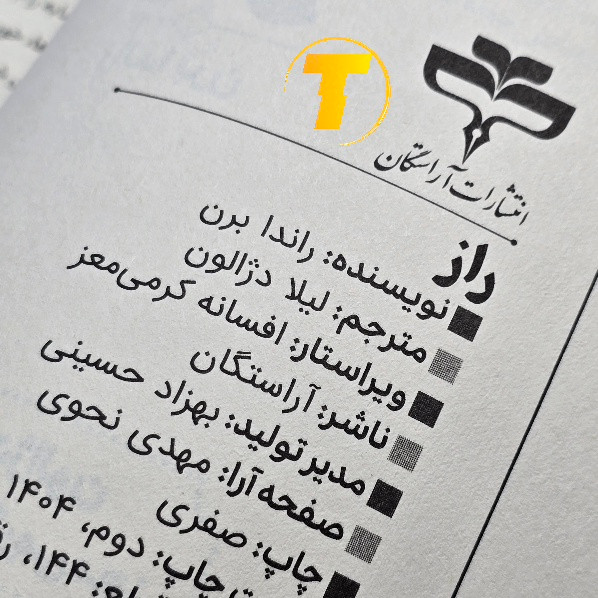 T
انتشارات آراستگان
راز
نویسنده: راندا برن
مترجم: لیلا دژالون
ویراستار: افسانه کرمی‌معز
ناشر: آراستگان
مدیر تولید: بهزاد حسینی
صفحه آرا: مهدی نحوی
چاپ: صفری
چاپ: دوم، ۱۴۰۴
۱۴۴،